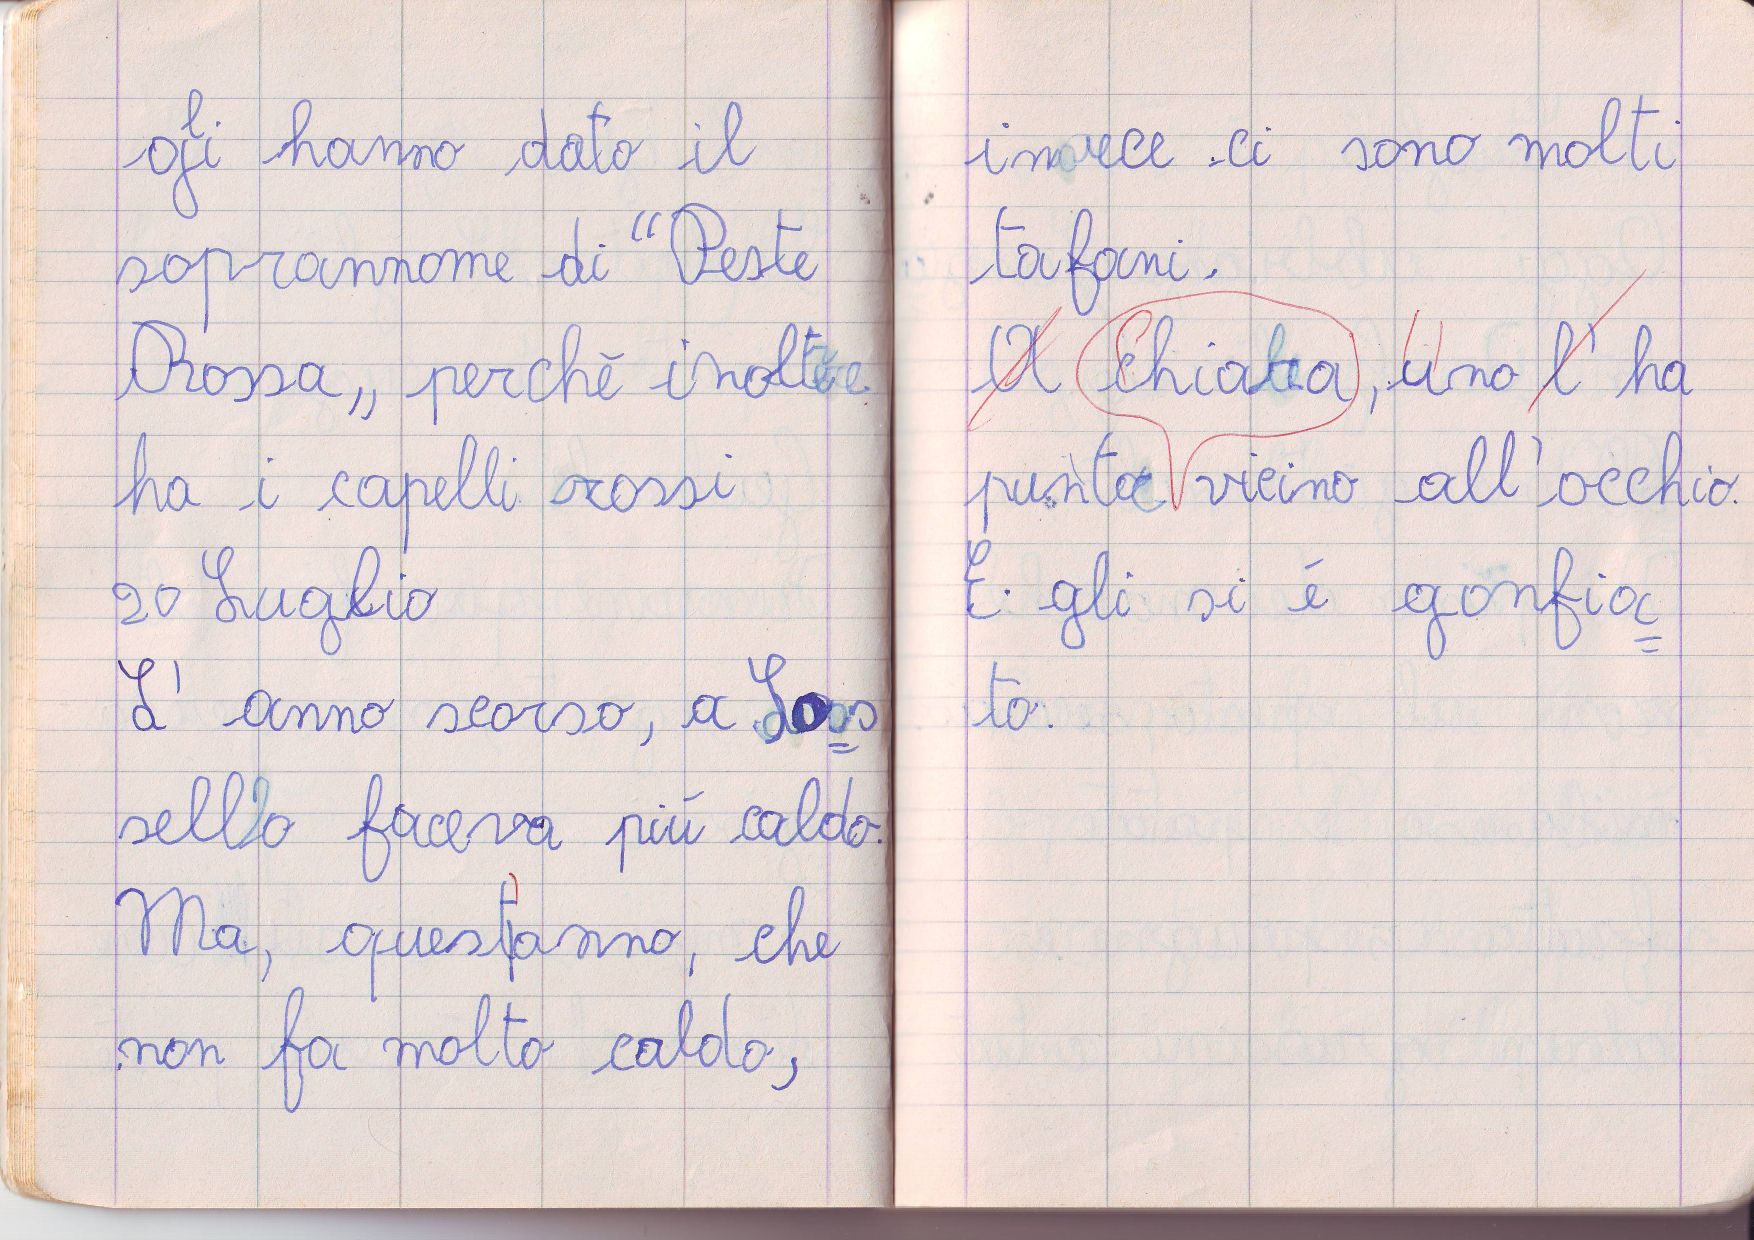 gli hanno dato il
soprannome di “Peste
Rossa„ perché inoltre
ha i capelli rossi
20 Luglio
L' anno scorso, a Los
sello faceva più caldo.
Ma, quest'anno, che
non fa molto caldo,
invece ci sono molti
tafani.
A Chiara, uno l' ha
punta vicino all'occhio.
E gli si é gonfia
to.